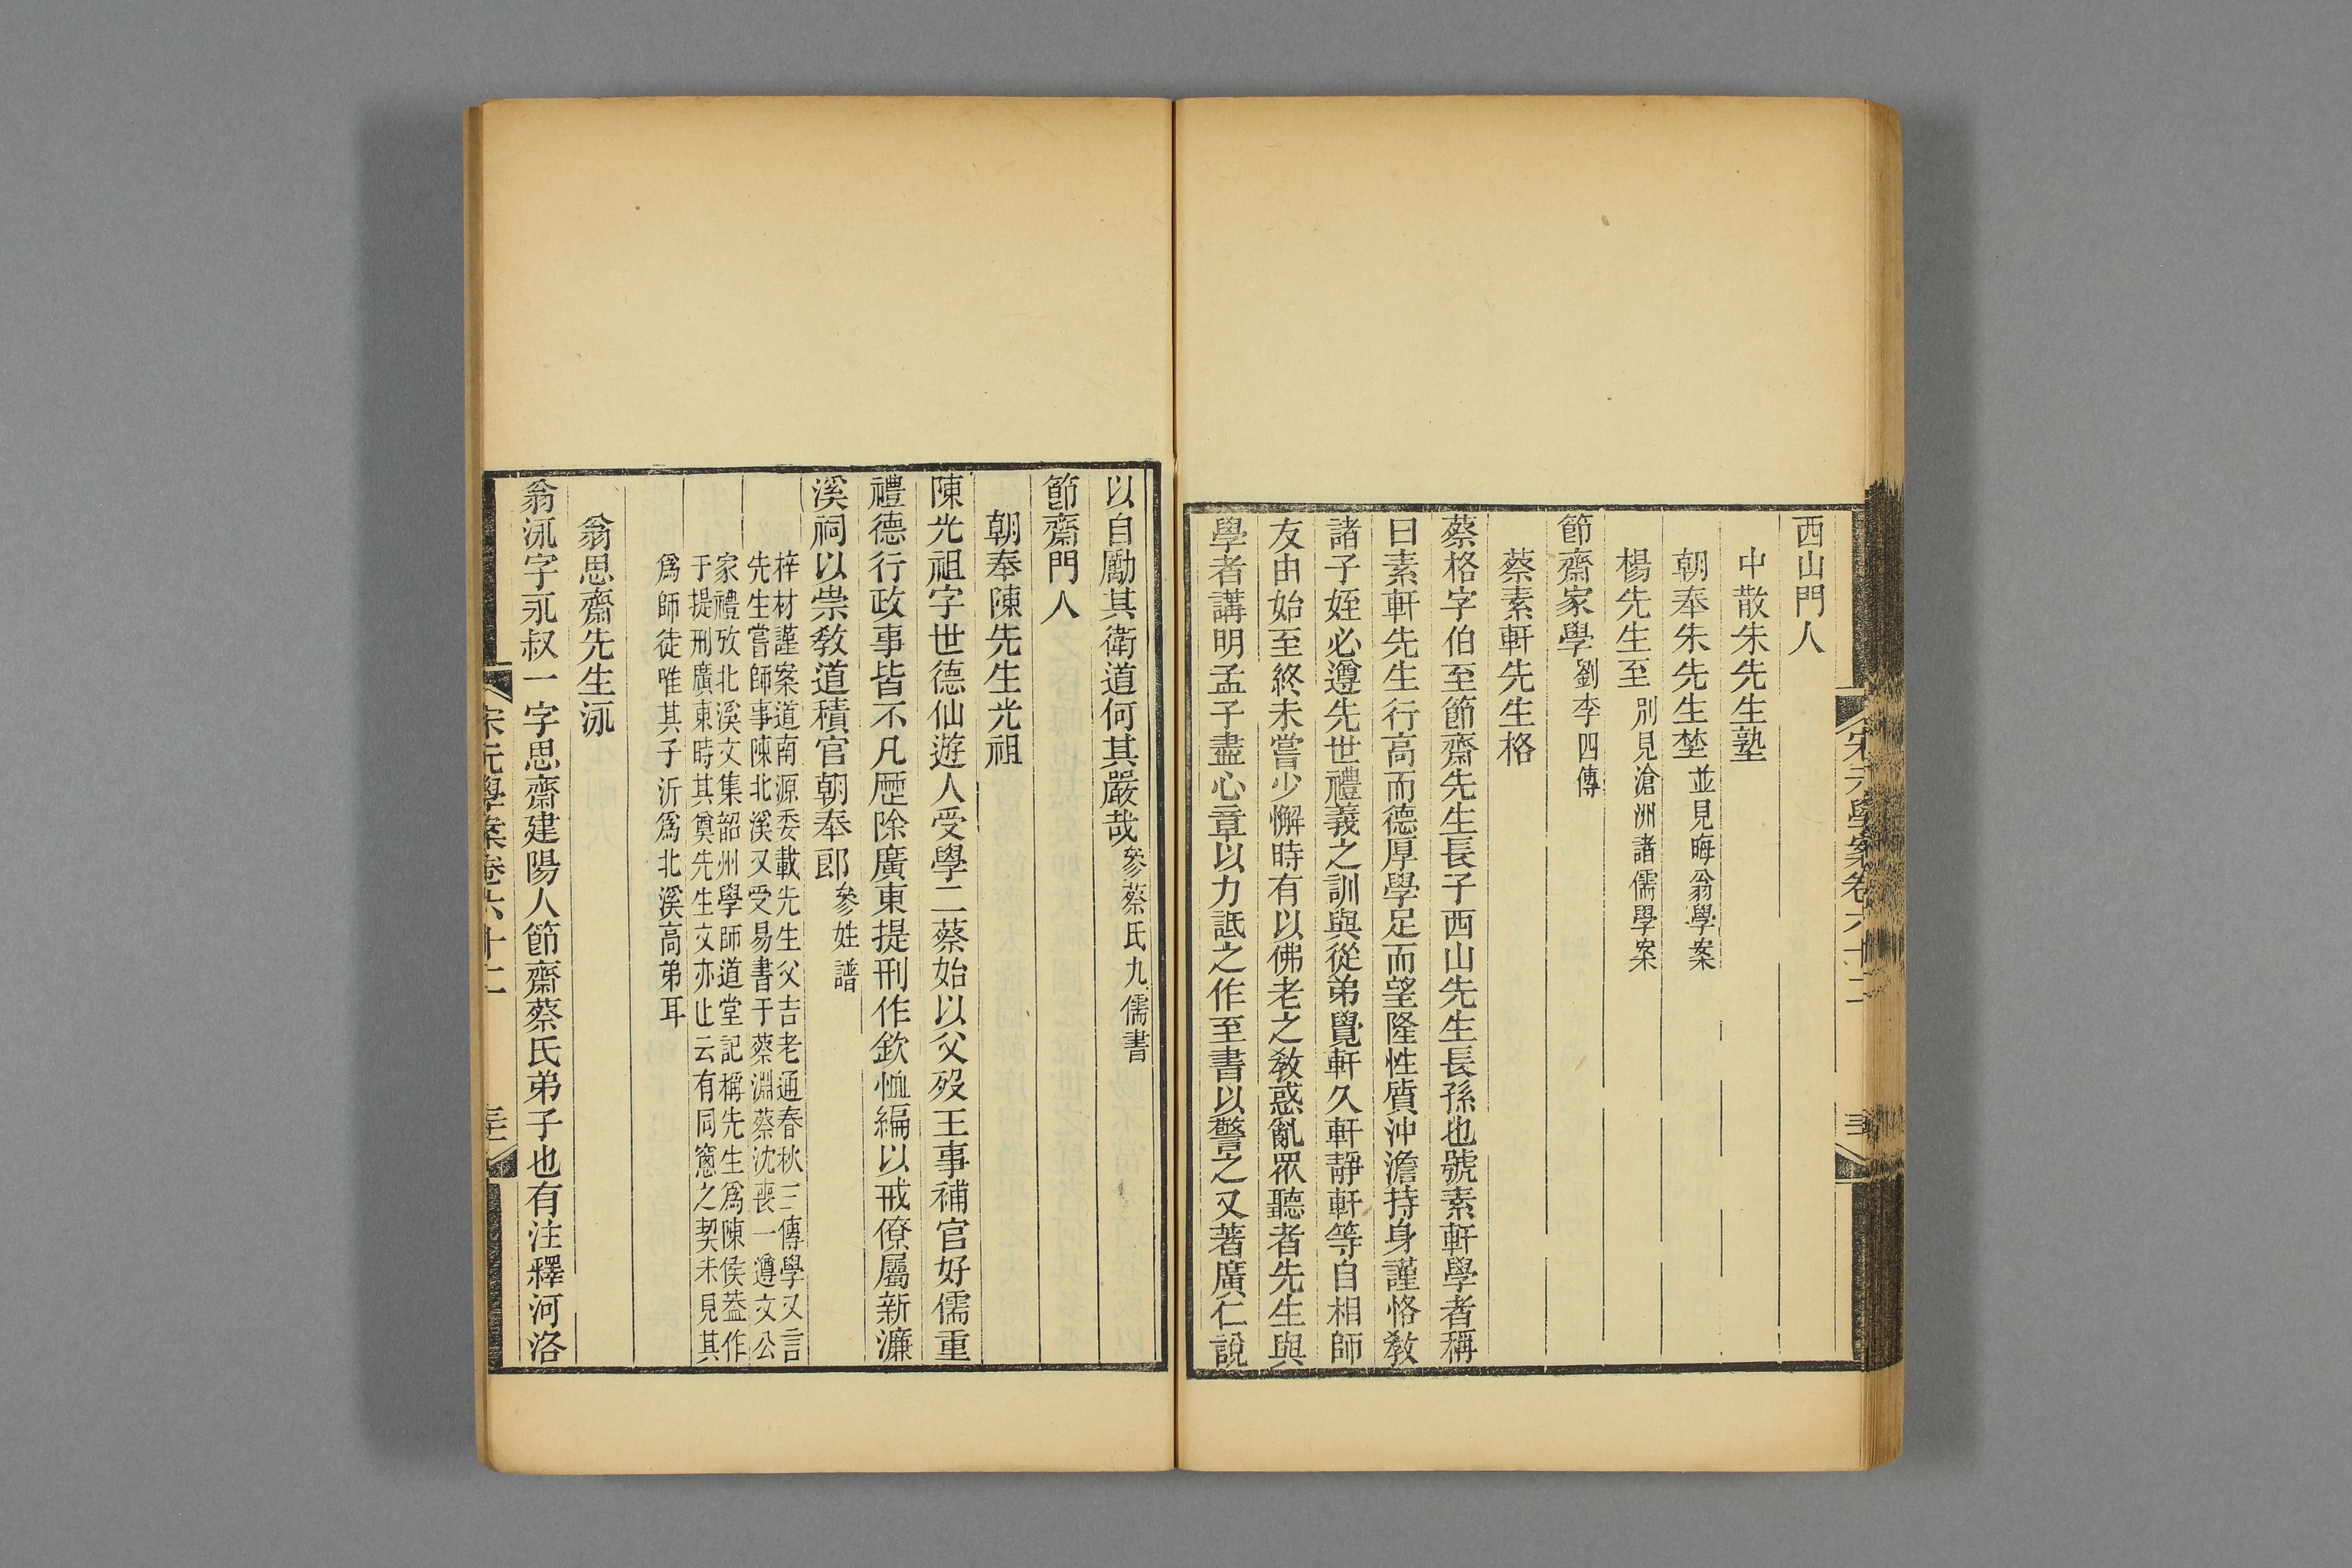 西山門人
中散朱先生塾
朝奉朱先生埜並見晦翁學案
楊先生至別見滄洲諸儒學案
節齋家學劉李四傳
蔡素軒先生格
蔡格字伯至節齋先生長子西山先生長孫也號素軒學者稱
曰素軒先生行高而德厚學足而望隆性質沖澹持身謹恪敎
諸子姪必遵先世禮義之訓與從弟覺軒久軒靜軒等自相師
友由始至終未嘗少懈時有以佛老之敎惑亂眾聽者先生與
學者講明孟子盡心章以力詆之作至書以警之又著廣仁說
以自勵其衛道何其嚴哉參蔡氏九儒書
節齋門人
朝奉陳先生光祖
陳光祖字世德仙遊人受學二蔡始以父歿王事補官好儒重
禮德行政事皆不凡歷除廣東提刑作欽恤編以戒僚屬新濂
溪祠以崇敎道積官朝奉郎參姓譜
梓材謹案道南源委載先生父吉老通春秋三傳學又言
先生嘗師事陳北溪又受易書于蔡淵蔡沈喪一遵文公
家禮攷北溪文集韶州學師道堂記稱先生爲陳侯葢作
于提刑廣東時其奠先生文亦止云有同窻之契未見其
爲師徒唯其子沂爲北溪高弟耳
翁思齋先生泳
翁泳字永叔一字思齋建陽人節齋蔡氏弟子也有注釋河洛
宋元學案卷六十二